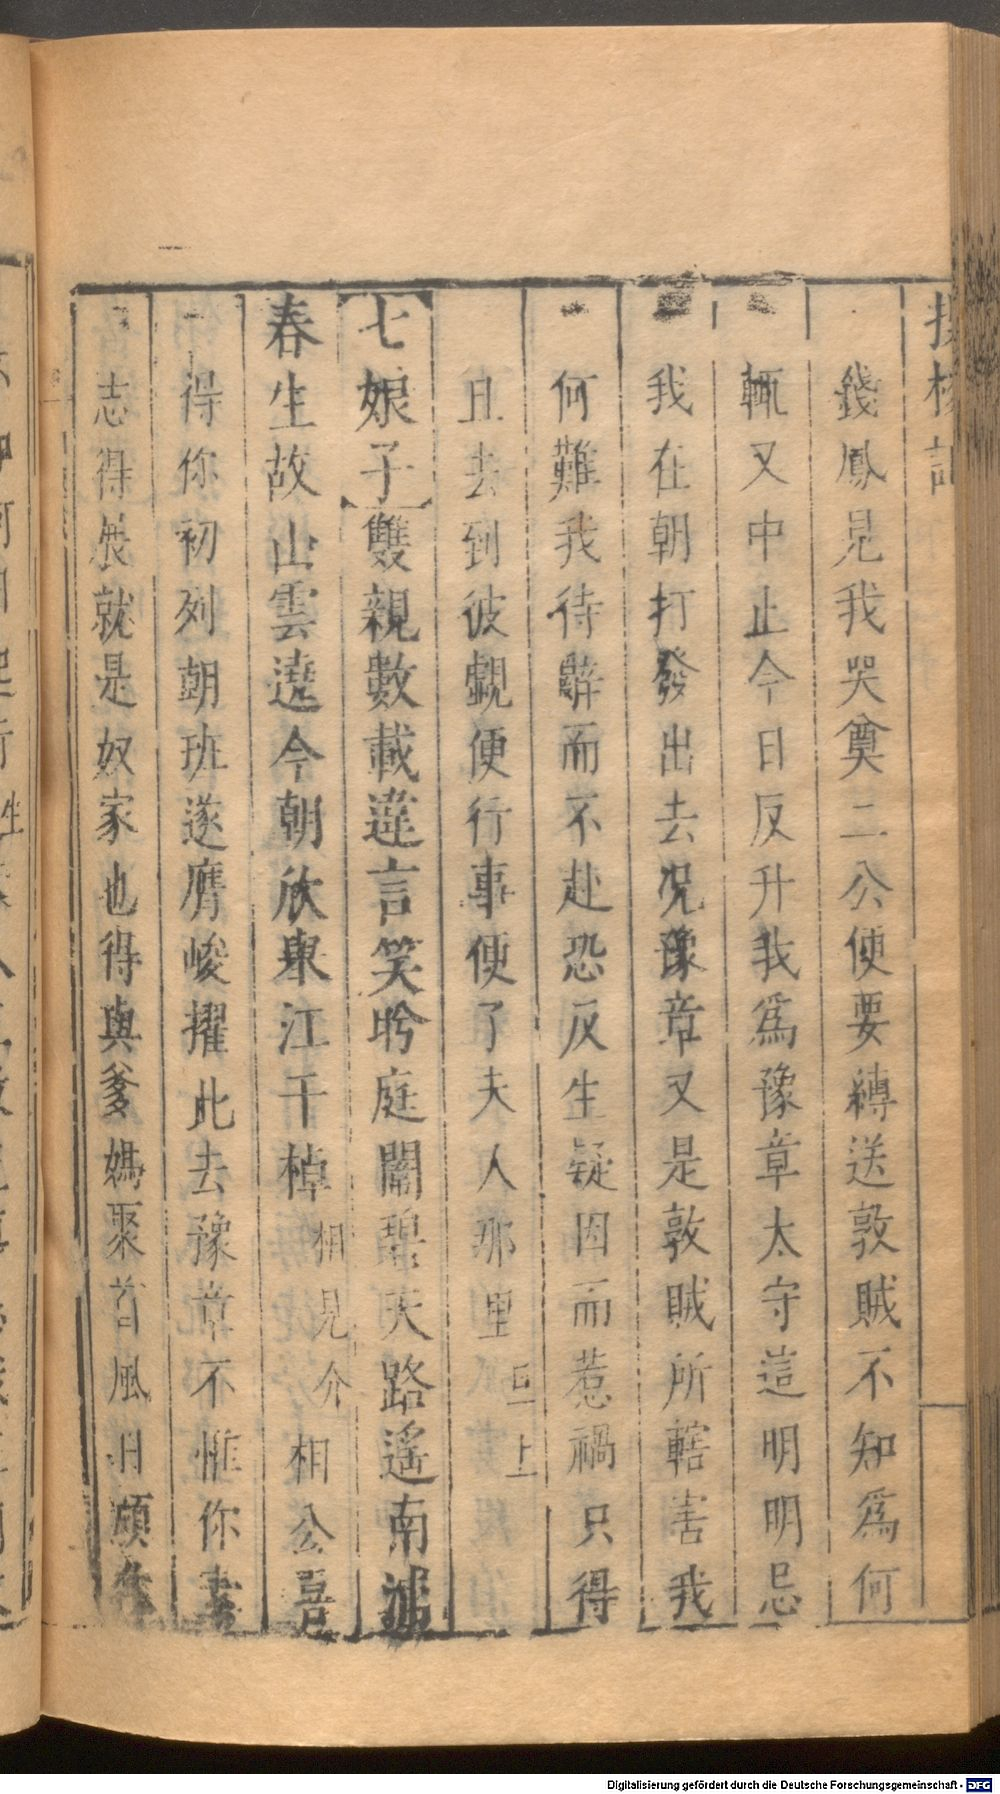 投梭記
錢鳳見我哭奠二公便要縛送敦賊不知爲何
輒又中止今日反升我爲豫章太守這明明忌
我在朝打發出去况豫章又是敦賊所轄害我
何難我待辭而不赴恐反生疑因而惹禍只得
且去到彼覷便行事便了夫人那里旦上
七娘子雙親數載違言笑盻庭闈碧天路遙南浦
春生故山雲遶今朝欣舉江干棹相見介相公喜
得你初列朝班遂膺峻擢此去豫章不惟你素
志得展就是奴家也得與爹媽聚首風日頗佳
Digitalisierung gefördert durch die Deutsche Forschungsgemeinschaft - DFG